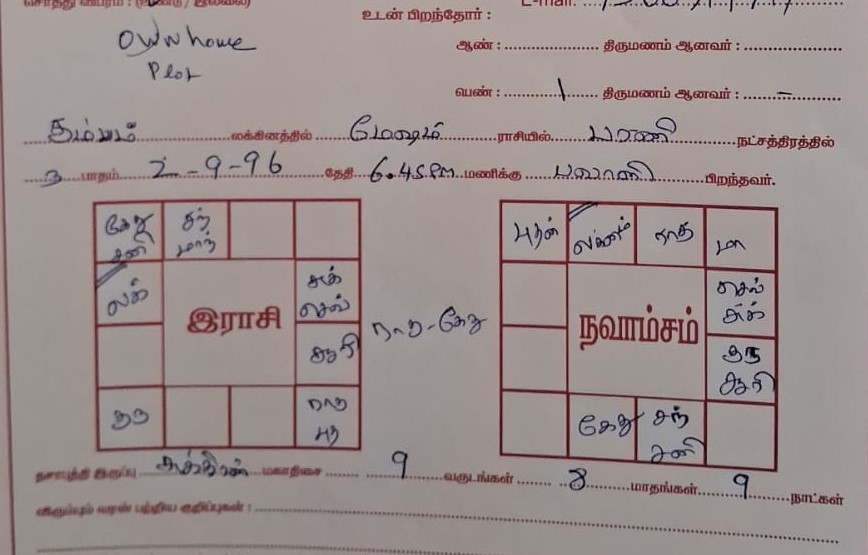 சொத்து விபரம் : (உண்டு / இல்லை)
E-mail.
உடன் பிறந்தோர் :
Own house
Plot
ஆண் : .................... திருமணம் ஆனவர் : ....................
பெண் : 1 திருமணம் ஆனவர் : –
கும்பம் லக்கினத்தில் மேஷம் ராசியில் பரணி நட்சத்திரத்தில்
3 பாதம் 2-9-96 தேதி 6.45 PM மணிக்கு பவானி பிறந்தவர்.
கேது சனி
சந் மாந்
புதன்
லக்னம்
ராகு
மா
லக்
இராசி
சுக் செவ்
ராகு-கேது
நவாம்சம்
செவ் சுக்
சூரி
குரு சூரி
குரு
ராகு புத
கேது
சந் சனி
தசாபுத்தி இருப்பு சுக்கிரன் மகாதிசை 9 வருடங்கள் 8 மாதங்கள் 9 நாட்கள்
விரும்பும் வரன் பற்றிய குறிப்புகள் :